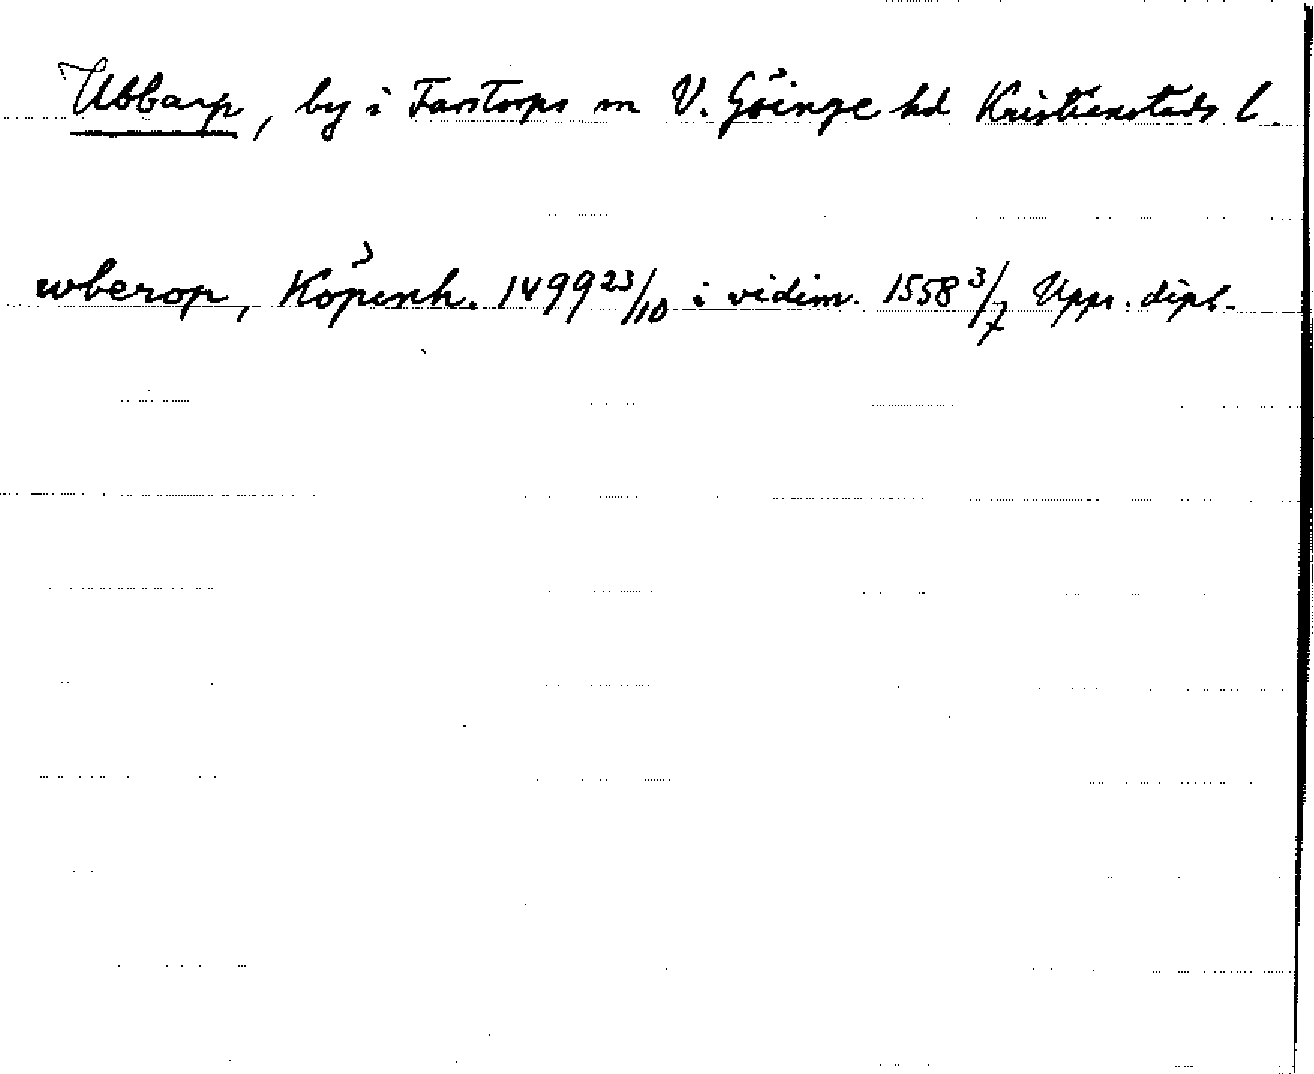 Ubbarp, by i Farstorps sn V. Göinge hd Kristianstads l.
wberop, Köpenh. 1499 23/10 i vidim. 1558 3/7 Upps. dipl.